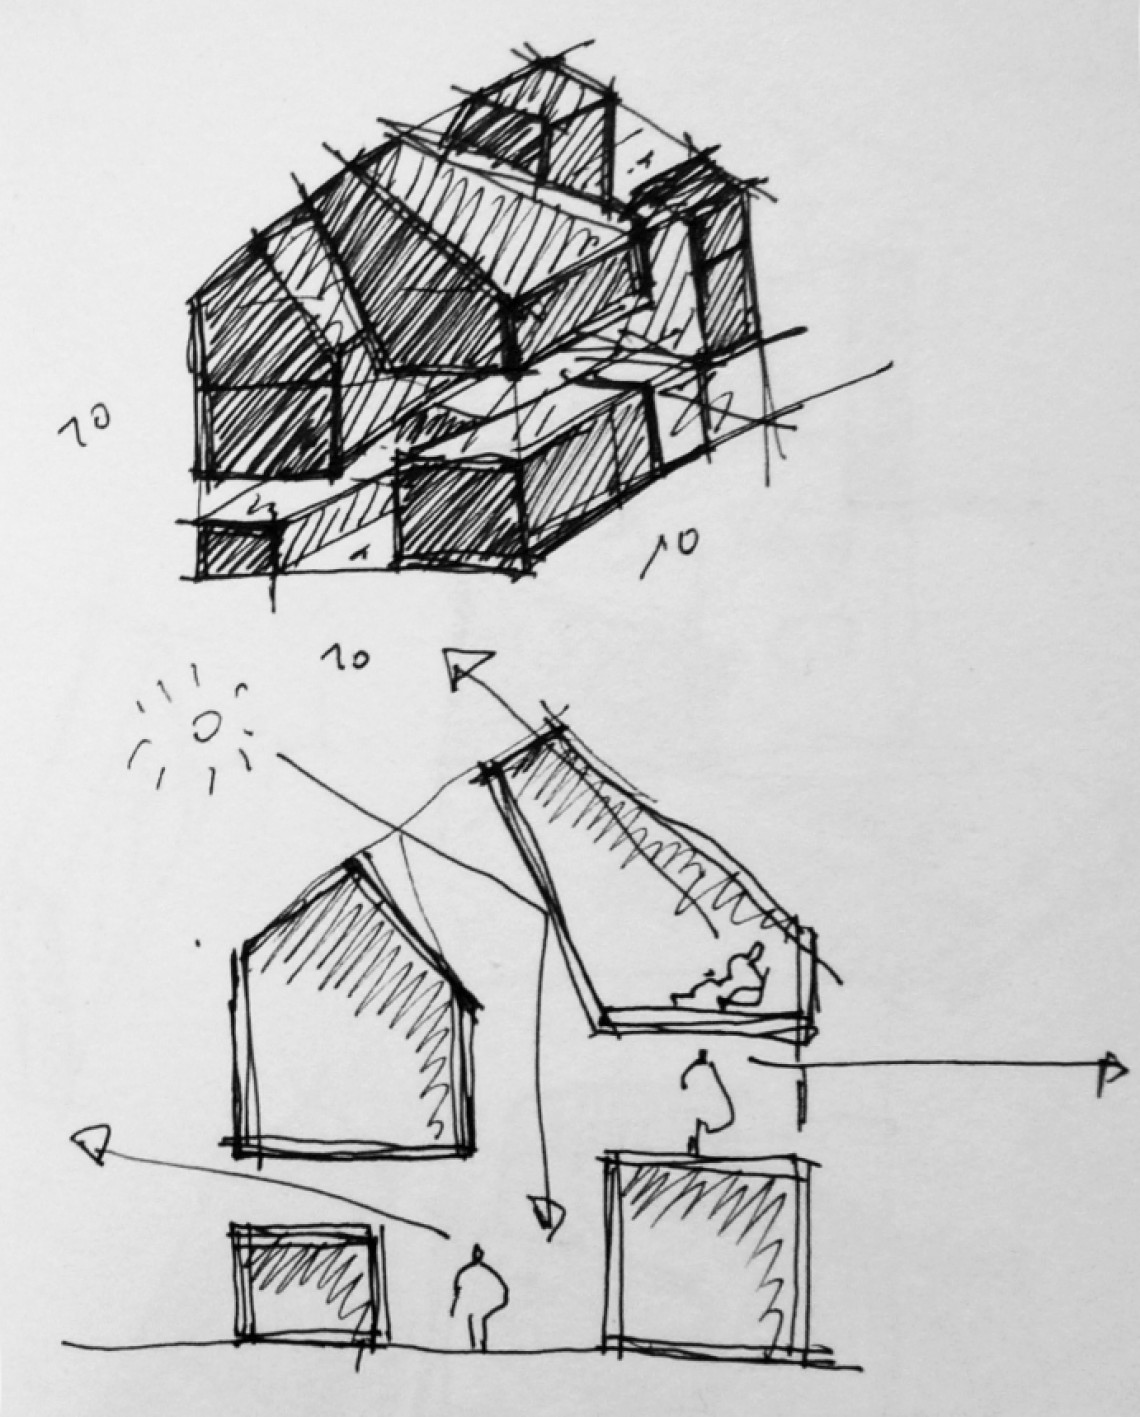 10
10
10